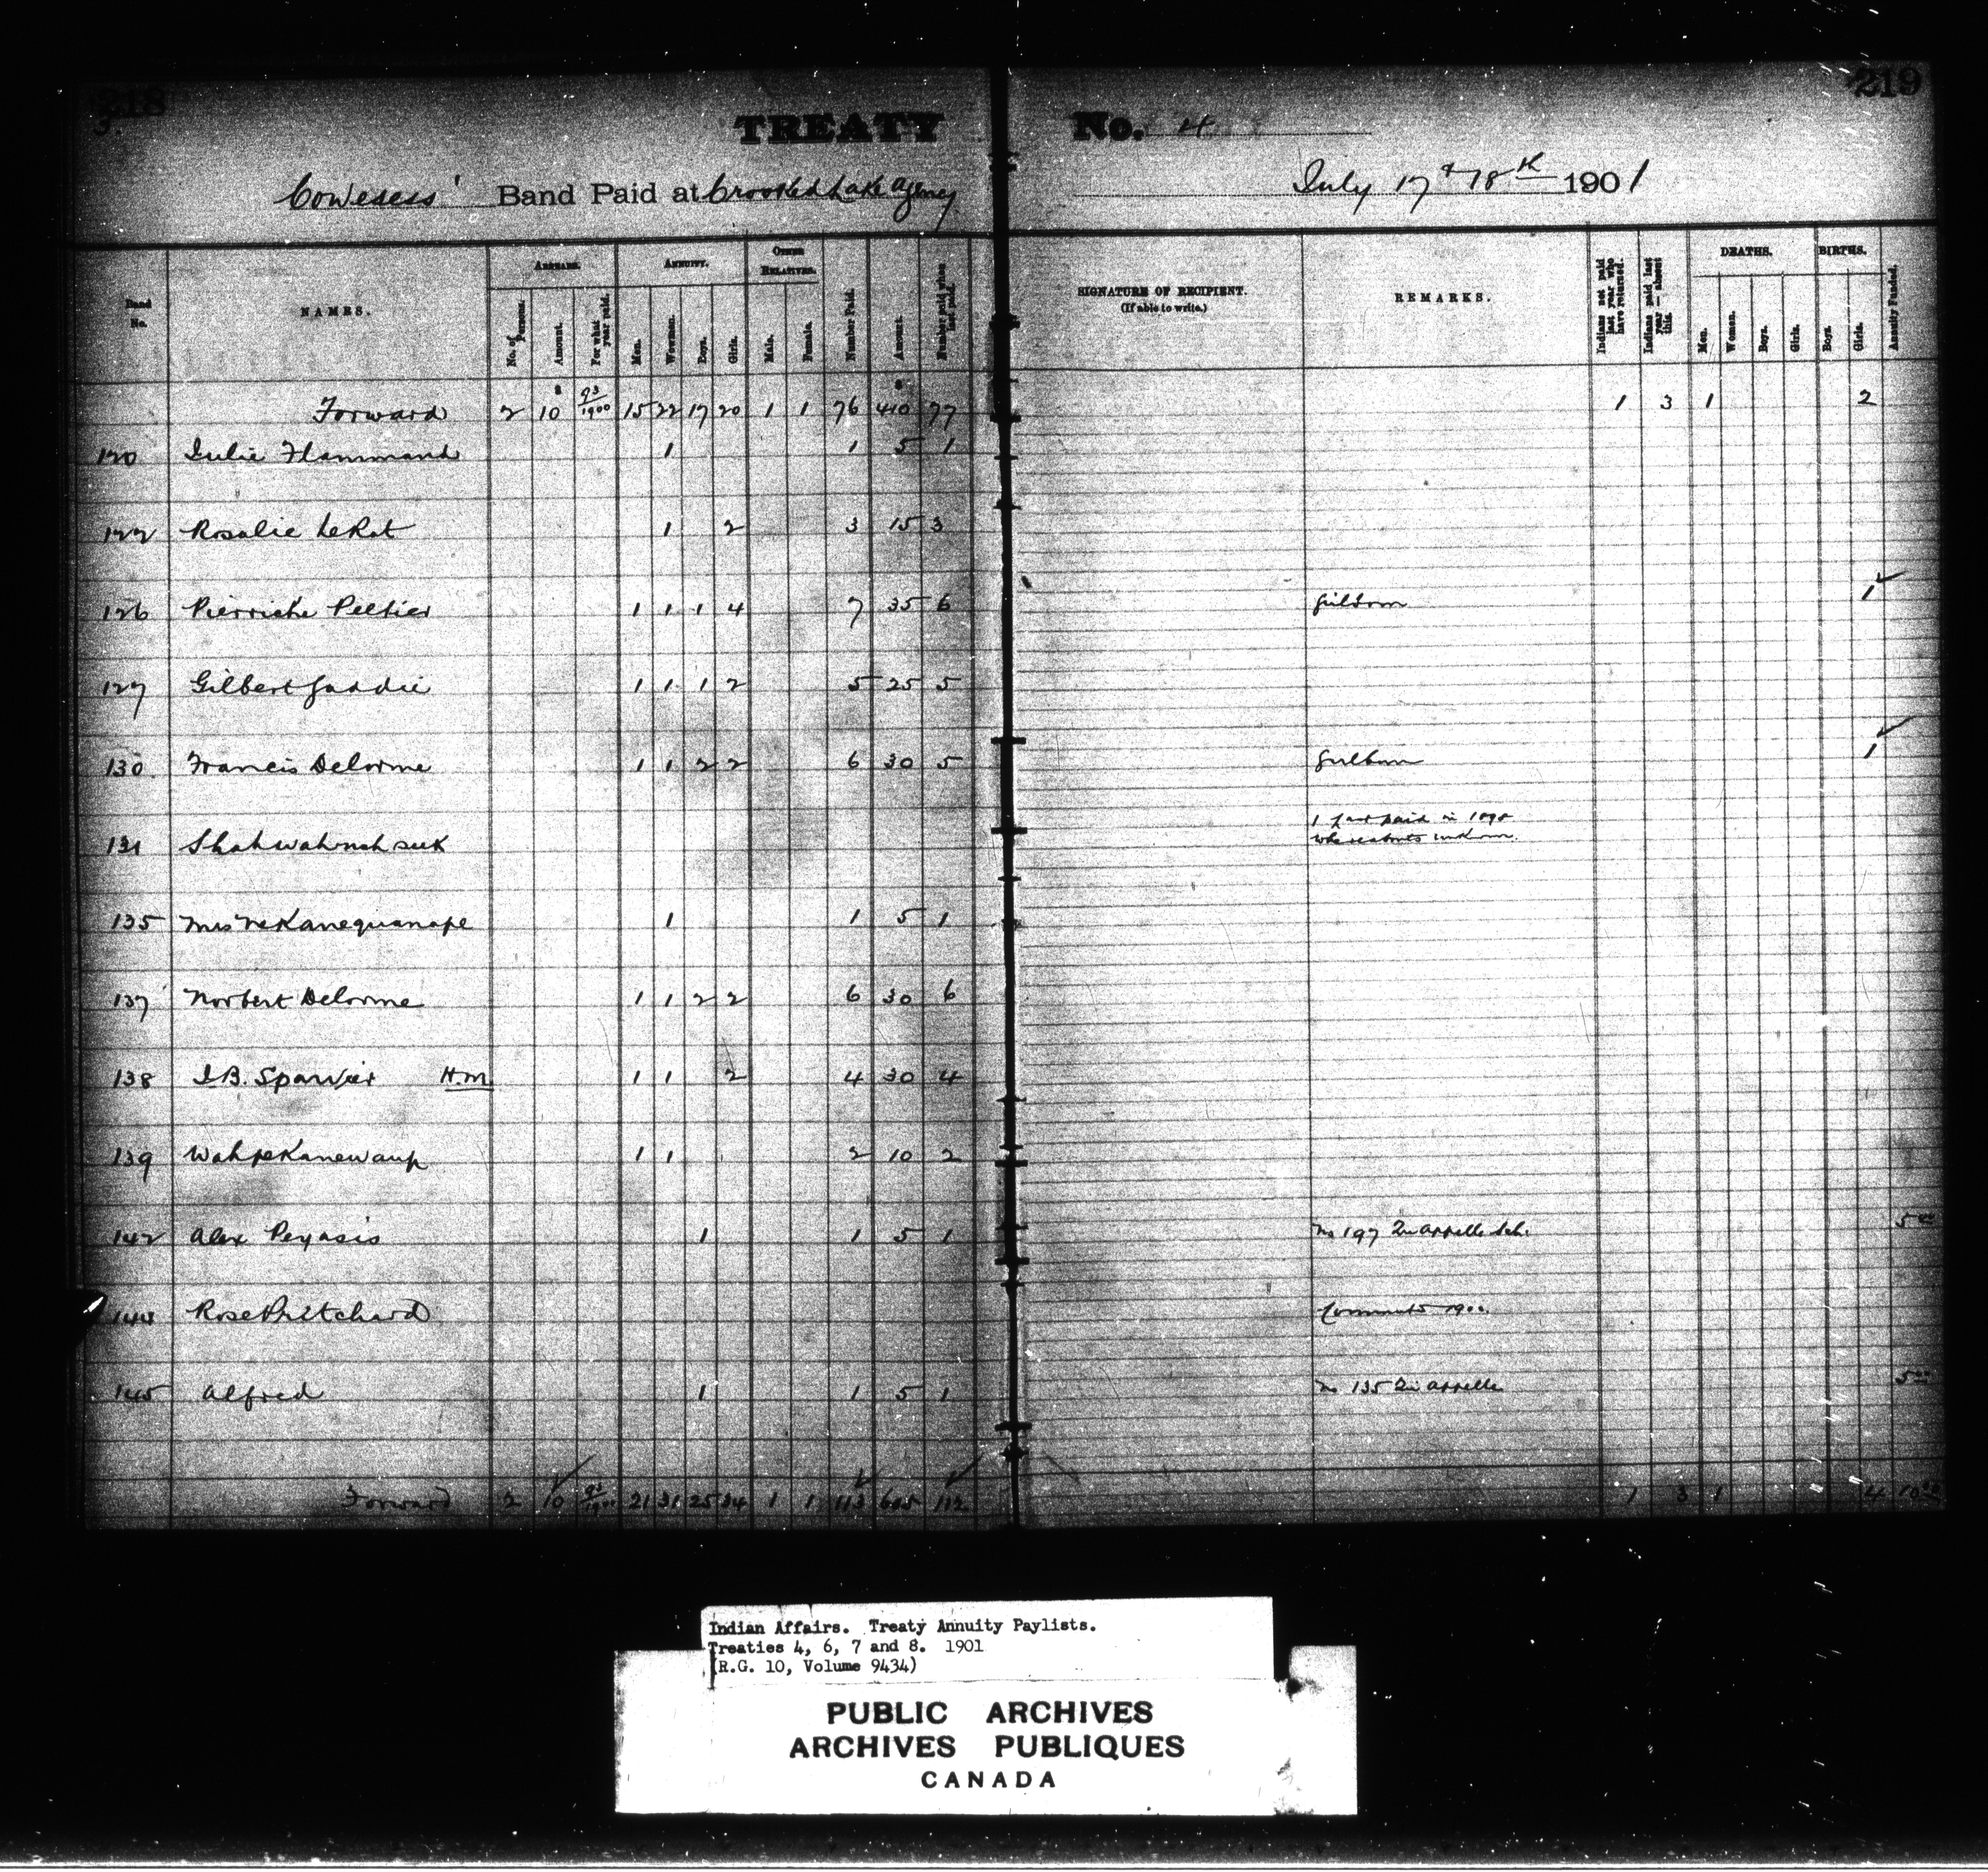 218
3.
219
TREATY No. 4
Cowesess' Band Paid at Crooked Lake Agency July 17 & 18th 1901
Band No.
NAMES.
ARREARS.
No. of Persons.
Amount.
For what year paid.
ANNUITY.
Men.
Women.
Boys.
Girls.
OTHER RELATIVES.
Male.
Female.
Number Paid.
Amount.
Number paid when last paid.
SIGNATURE OF RECIPIENT.
(If able to write.)
REMARKS.
Indians not paid last year who have returned.
Indians paid last year — absent this.
DEATHS.
Men.
Women.
Boys.
Girls.
BIRTHS.
Boys.
Girls.
Annuity Funded.
Forward 2 $10 93/1900 15 22 17 20 1 1 76 $410 77 1 3 1 2
120 Julie Flammand 1 1 5 1
122 Rosalie LeRat 1 2 3 15 3
126 Pierriche Peltier 1 1 1 4 7 35 6 girl born 1
127 Gilbert Gaddie 1 1 1 2 5 25 5
130 Francis Delorme 1 1 2 2 6 30 5 girl born 1
131 Shahwahnahseek 1 last paid in
whereabouts unknown.
135 Mrs Nekanequanape 1 1 5 1
137 Norbert Delorme 1 1 2 2 6 30 6
138 J.B. Sparvier H.M 1 1 2 4 30 4
139 Wahpekanewaup 1 1 2 10 2
142 Alex Peyasis 1 1 5 1 No 197 Qu'appelle Sch. 5 00
144 Rose Pritchard Commuted 1900.
145 Alfred 1 1 5 1 No 135 Qu'appelle 5 00
Forward 2 10 93/1900 21 31 25 34 1 1 113 605 112 1 3 1 4 10 00
Indian Affairs. Treaty Annuity Paylists.
Treaties 4, 6, 7 and 8. 1901
(R.G. 10, Volume 9434)
PUBLIC ARCHIVES
ARCHIVES PUBLIQUES
CANADA